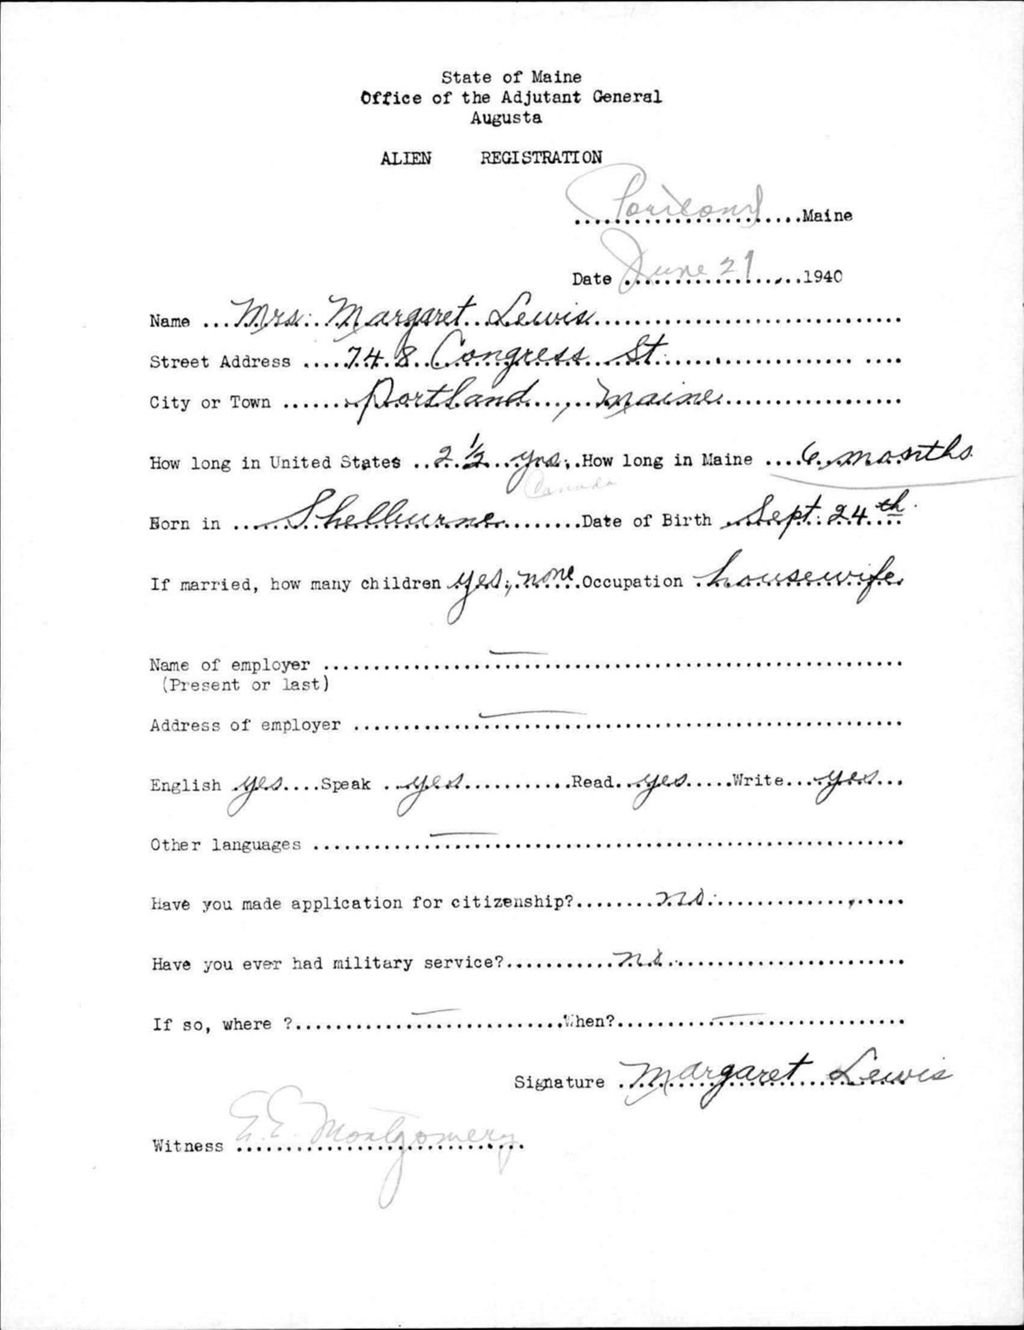 State of Maine
Office of the Adjutant General
Augusta
ALIEN REGISTRATION
Portland Maine
Date June 21 1940
Name Mrs. Margaret Lewis
Street Address 748 Congress St.
City or Town Portland, Maine
How long in United States 2 1/2 yrs. How long in Maine 6 months
Canada
Born in Shelburne Date of Birth Sept. 24th.
If married, how many children yes, none Occupation housewife
Name of employer
(Present or last)
Address of employer
English yes Speak yes Read yes Write yes
Other languages
Have you made application for citizenship? no.
Have you ever had military service? no.
If so, where ? When?
Signature Margaret Lewis
Witness E. E. Montgomery